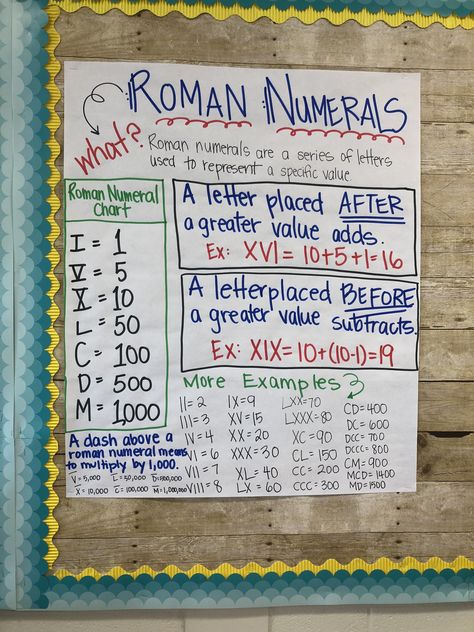 ROMAN NUMERALS
what?
Roman numerals are a series of letters
used to represent a specific value
Roman Numeral
Chart
I = 1
V = 5
X = 10
L = 50
C = 100
D = 500
M = 1,000
A letter placed AFTER
a greater value adds.
Ex: XVI = 10+5+1=16
A letter placed BEFORE
a greater value subtracts.
Ex: XIX = 10+(10-1)=19
More Examples
II = 2
III = 3
IV = 4
VI = 6
VII = 7
VIII = 8
IX = 9
XV = 15
XX = 20
XXX = 30
XL = 40
LX = 60
LXX = 70
LXXX = 80
XC = 90
CL = 150
CC = 200
CCC = 300
CD = 400
DC = 600
DCC = 700
DCCC = 800
CM = 900
MCD = 1400
MD = 1500
A dash above a
roman numeral means
to multiply by 1,000.
V̅ = 5,000 L̅ = 50,000 D̅ = 500,000
X̅ = 10,000 C̅ = 100,000 M̅ = 1,000,000